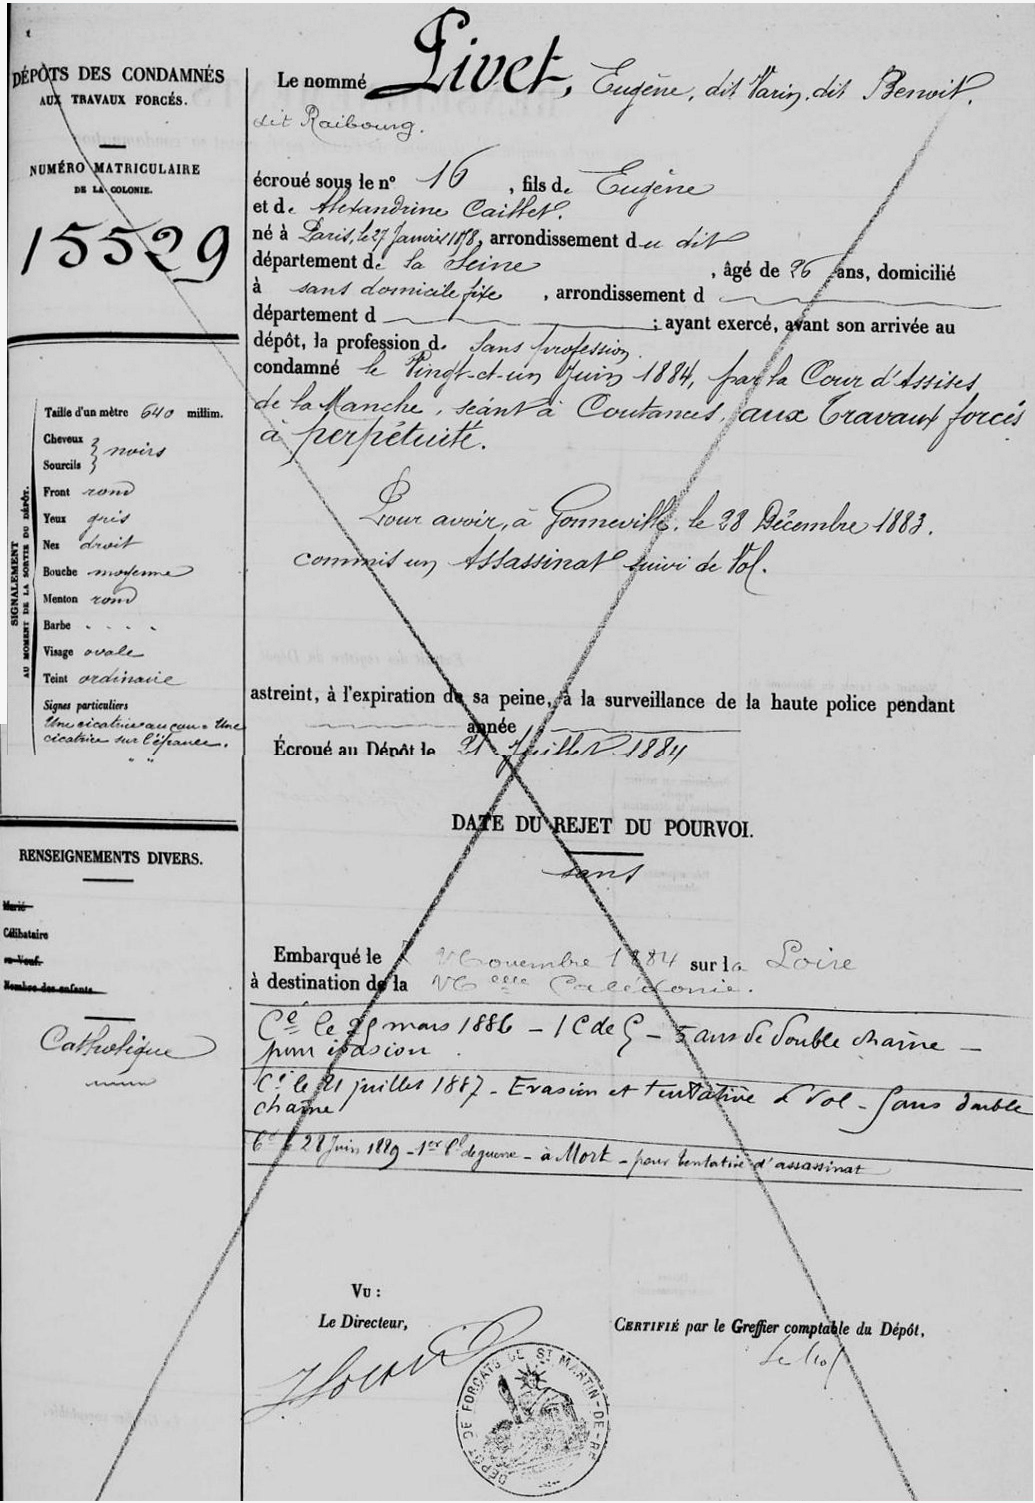 DÉPÔTS DES CONDAMNÉS
AUX TRAVAUX FORCÉS.
NUMÉRO MATRICULAIRE
DE LA COLONIE.
15529
SIGNALEMENT
AU MOMENT DE LA SORTIE DU DÉPÔT.
Taille d'un mètre 640 millim.
Cheveux
Sourcils } noirs
Front rond
Yeux gris
Nez droit
Bouche moyenne
Menton rond
Barbe . . . .
Visage ovale
Teint ordinaire
Signes particuliers
Une cicatrice au cou = Une
cicatrice sur l'épaule.
RENSEIGNEMENTS DIVERS.
Marié
Célibataire
ou Veuf.
Nombre des enfants
Catholique
Le nommé Livet, Eugène, dit Varin, dit Benoit,
dit Raibourg.
écroué sous le n° 16, fils de Eugène
et de Alexandrine Caillet.
né à Paris, le 27 Janvier 1858, arrondissement du dit
département de la Seine, âgé de 26 ans, domicilié
à sans domicile fixe, arrondissement d
département d ; ayant exercé, avant son arrivée au
dépôt, la profession de Sans profession.
condamné le Vingt-et-un Juin 1884, par la Cour d'Assises
de la Manche, séant à Coutances, aux Travaux forcés
à perpétuité.
Pour avoir, à Gonneville, le 28 Décembre 1883,
commis un Assassinat suivi de Vol.
astreint, à l'expiration de sa peine, à la surveillance de la haute police pendant
année
Écroué au Dépôt le 21 Juillet 1884
DATE DU REJET DU POURVOI.
sans
Embarqué le Novembre 1884 sur la Loire
à destination de la Nelle Calédonie.
Cé le 29 mars 1886 - 1 C de G - 5 ans de double chaîne -
pour évasion.
Cé le 21 juillet 1887 - Evasion et tentative de Vol - 5 ans double
chaîne
Cé le 28 Juin 1889 - 1er Cl de guerre - à Mort - pour tentative d'assassinat
VU :
Le Directeur,
CERTIFIÉ par le Greffier comptable du Dépôt,
DÉPÔT DE FORÇATS DE ST MARTIN-DE-RÉ